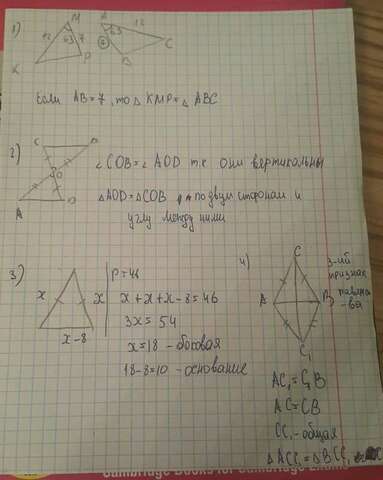 1)
M
12
63
7
K
P
A
12
63
7
B
C
Если AB=7, то △ KMP = △ ABC
2)
C
O
A
D
∠COB=∠AOD т.к они вертикальны
△AOD=△COB по двум сторонам и
углу между ними
3)
x
x
x-8
P=46
x+x+x-8=46
3x=54
x=18 - боковая
18-8=10 - основание
4)
C
A
B
C₁
3-ий
признак
равенст
-ва
AC₁=C₁B
AC=CB
CC₁-общая
△ACC₁=△BCC₁
Cambridge Books for Cambridge Exams